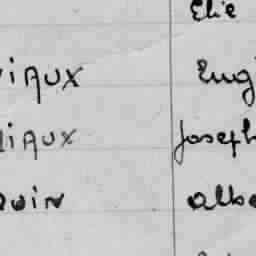 Elie
viaux Eug
liaux Joseph
ouin Albe